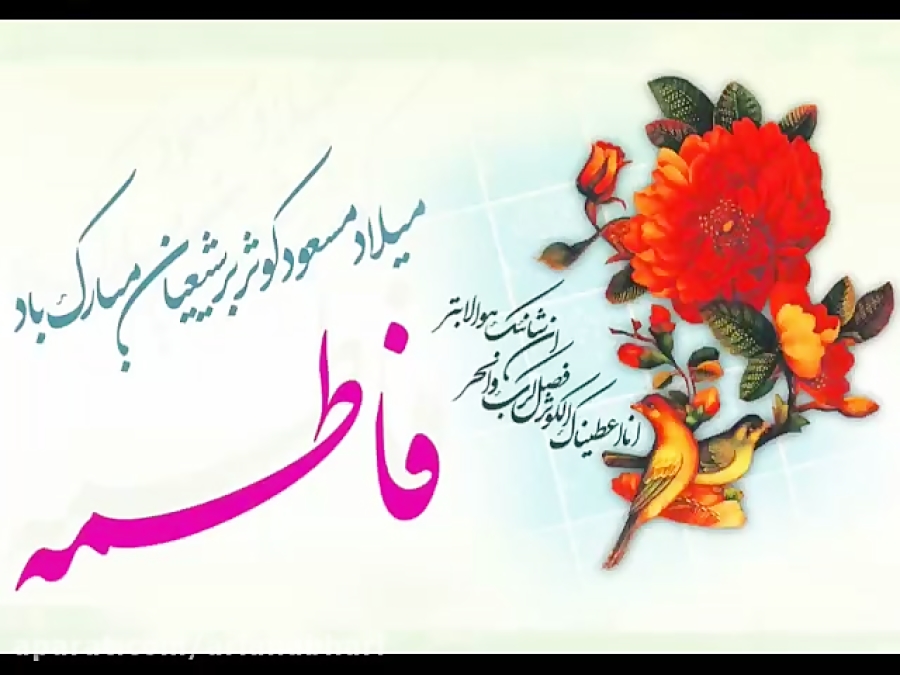 میلاد مسعود کوثر بر شیعیان مبارک باد
فاطمه
انا اعطیناک الکوثر
فصل لربک وانحر
ان شانئک هوالابتر